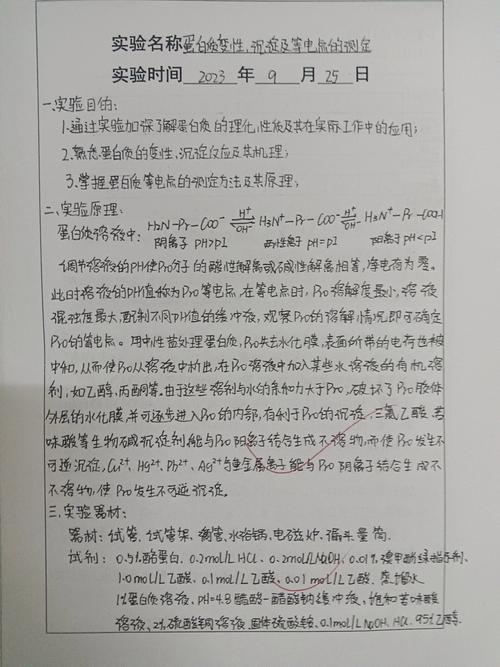 实验名称 蛋白质变性、沉淀及等电点的测定
实验时间 2023 年 9 月 25 日
一、实验目的:
1.通过实验加深了解蛋白质的理化性质及其在实际工作中的应用;
2.熟悉蛋白质的变性、沉淀反应及其机理;
3.掌握蛋白质等电点的测定方法及其原理;
二、实验原理:
蛋白质溶液中: H₂N-Pr-COO⁻ H⁺ OH⁻ H₃N⁺-Pr-COO⁻ H⁺ OH⁻ H₃N⁺-Pr-COOH
阴离子 pH>pI 两性离子 pH=pI 阳离子 pH<pI
调节溶液的PH使Pro分子的酸性解离或碱性解离相等,净电荷为零。
此时溶液的PH值称为Pro等电点,在等电点时,Pro溶解度最小,溶液
混浊度最大,配制不同PH值的缓冲液,观察Pro的溶解情况即可确定
Pro的等电点。用中性盐处理蛋白质,Pro失去水化膜,表面所带的电荷也被
中和,从而使Pro从溶液中析出,在Pro溶液中加入某些水溶液的有机溶
剂,如乙醇,丙酮等。由于这些溶剂与水的亲和力大于Pro,破坏了Pro胶体
外层的水化膜,并可逐步进入Pro的内部,有利于Pro的沉淀,三氯乙酸、苦
味酸等生物碱沉淀剂,能与Pro阳离子结合生成不溶物,而使Pro发生不
可逆沉淀,Cu²⁺、Hg²⁺、Pb²⁺、Ag²⁺与重金属离子能与Pro阴离子结合生成不
不溶物,使Pro发生不可逆沉淀。
三、实验器材:
器材:试管、试管架、滴管、水浴锅、电磁炉、漏斗、量筒.
试剂: 0.5%酪蛋白、0.2mol/L HCl、0.2mol/L NaOH、0.01%溴甲酚绿指示剂、
1.0mol/L乙酸、0.1mol/L乙酸、0.01mol/L乙酸、蒸馏水
1%蛋白质溶液、pH=4.8醋酸-醋酸钠缓冲液、饱和苦味酸
溶液、2%硫酸铜溶液、固体硫酸铵、0.1mol/L NaOH、HCl、95%乙醇.